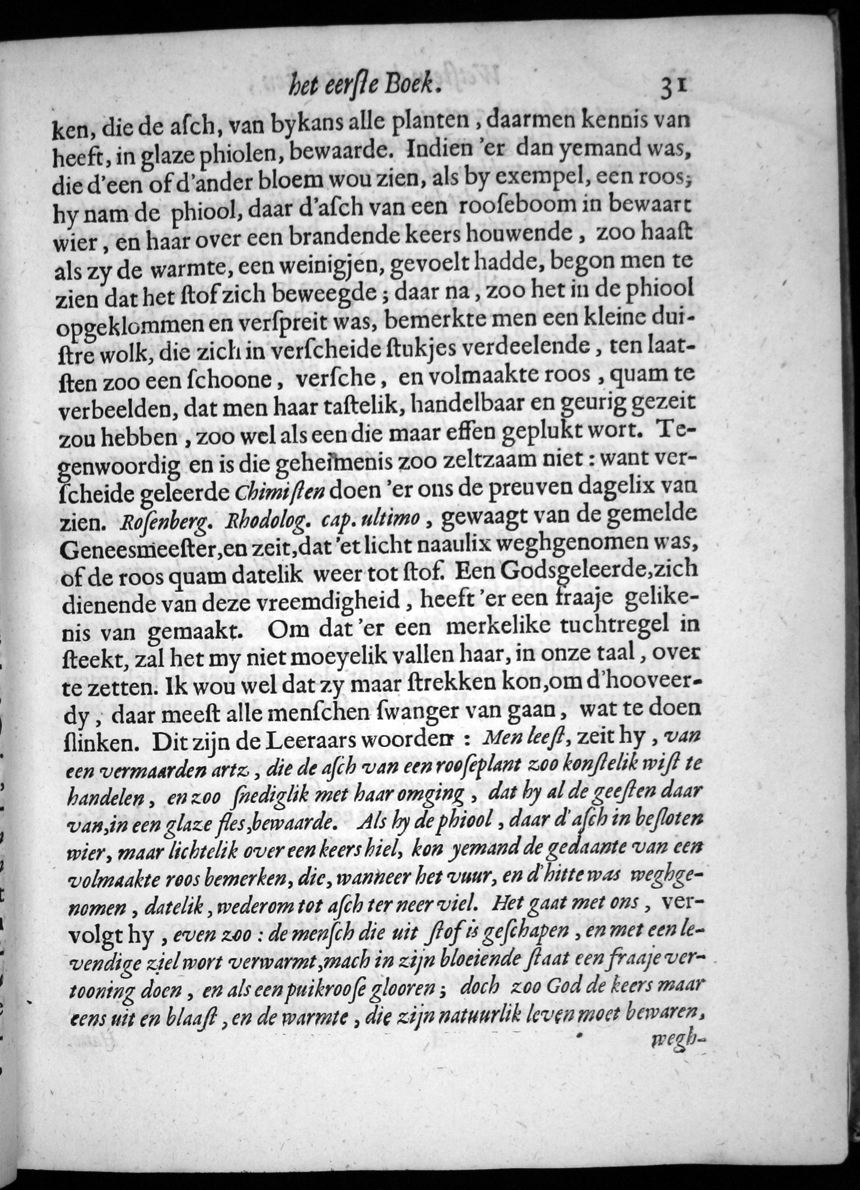 het eerſte Boek. 31
ken, die de aſch, van bykans alle planten, daarmen kennis van
heeft, in glaze phiolen, bewaarde. Indien 'er dan yemand was,
die d'een of d'ander bloem wou zien, als by exempel, een roos;
hy nam de phiool, daar d'aſch van een rooſeboom in bewaart
wier, en haar over een brandende keers houwende, zoo haaſt
als zy de warmte, een weinigjen, gevoelt hadde, begon men te
zien dat het ſtof zich beweegde; daar na, zoo het in de phiool
opgeklommen en verſpreit was, bemerkte men een kleine dui-
ſtre wolk, die zich in verſcheide ſtukjes verdeelende, ten laat-
ſten zoo een ſchoone, verſche, en volmaakte roos, quam te
verbeelden, dat men haar taſtelik, handelbaar en geurig gezeit
zou hebben, zoo wel als een die maar effen geplukt wort. Te-
genwoordig en is die geheimenis zoo zeltzaam niet: want ver-
ſcheide geleerde Chimiſten doen 'er ons de preuven dagelix van
zien. Roſenberg. Rhodolog. cap. ultimo, gewaagt van de gemelde
Geneesmeeſter, en zeit, dat 'et licht naaulix weghgenomen was,
of de roos quam datelik weer tot ſtof. Een Godsgeleerde, zich
dienende van deze vreemdigheid, heeft 'er een fraaje gelike-
nis van gemaakt. Om dat 'er een merkelike tuchtregel in
ſteekt, zal het my niet moeyelik vallen haar, in onze taal, over
te zetten. Ik wou wel dat zy maar ſtrekken kon, om d'hooveer-
dy, daar meeſt alle menſchen ſwanger van gaan, wat te doen
ſlinken. Dit zijn de Leeraars woorden: Men leeſt, zeit hy, van
een vermaarden artz, die de aſch van een rooſeplant zoo konſtelik wiſt te
handelen, en zoo ſnediglik met haar omging, dat hy al de geeſten daar
van, in een glaze fles, bewaarde. Als hy de phiool, daar d'aſch in beſloten
wier, maar lichtelik over een keers hiel, kon yemand de gedaante van een
volmaakte roos bemerken, die, wanneer het vuur, en d'hitte was weghge-
nomen, datelik, wederom tot aſch ter neer viel. Het gaat met ons, ver-
volgt hy, even zoo: de menſch die uit ſtof is geſchapen, en met een le-
vendige ziel wort verwarmt, mach in zijn bloeiende ſtaat een fraaje ver-
tooning doen, en als een puikrooſe glooren; doch zoo God de keers maar
eens uit en blaaſt, en de warmte, die zijn natuurlik leven moet bewaren,
wegh-